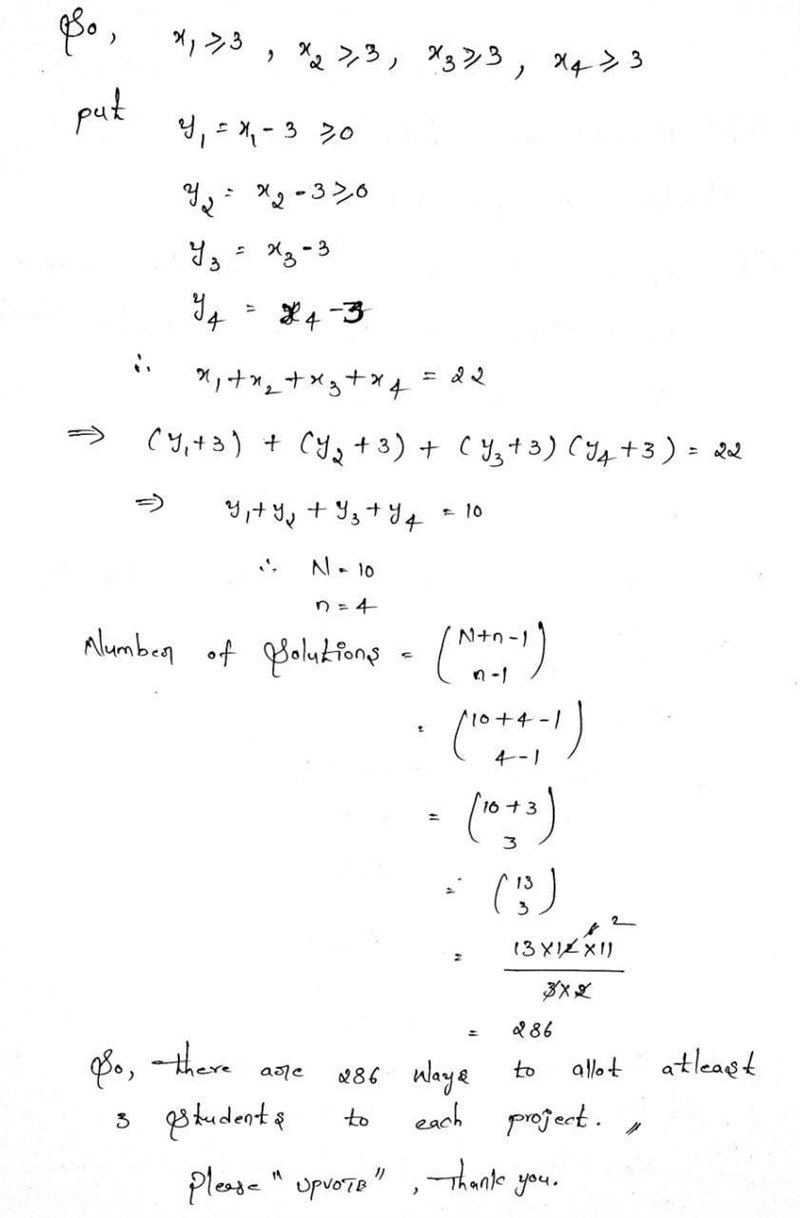 So, x₁ ≥ 3 , x₂ ≥ 3, x₃ ≥ 3 , x₄ ≥ 3
put y₁ = x₁ - 3 ≥ 0
y₂ = x₂ - 3 ≥ 0
y₃ = x₃ - 3
y₄ = x₄ - 3
∴ x₁ + x₂ + x₃ + x₄ = 22
⇒ (y₁+3) + (y₂+3) + (y₃+3) (y₄+3) = 22
⇒ y₁ + y₂ + y₃ + y₄ = 10
∴ N = 10
n = 4
Number of Solutions = (N+n-1
n-1)
= (10+4-1
4-1)
= (10+3
3)
= (13
3)
2
= 13×12×11
3×2
= 286
So, there are 286 ways to allot atleast
3 students to each project. //
Please "UPVOTE", Thank you.